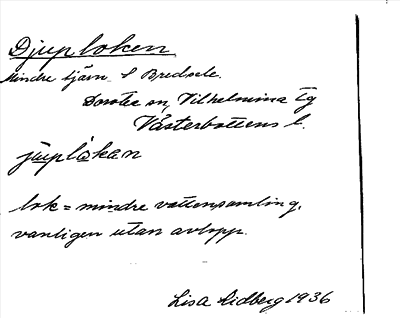 Djuploken
Mindre tjärn S Bredsele.
Dorotea sn, Vilhelmina tg
Västerbottens l.
juplåkan
lok = mindre vattensamling,
vanligen utan avlopp.
Lisa Lidberg 1936